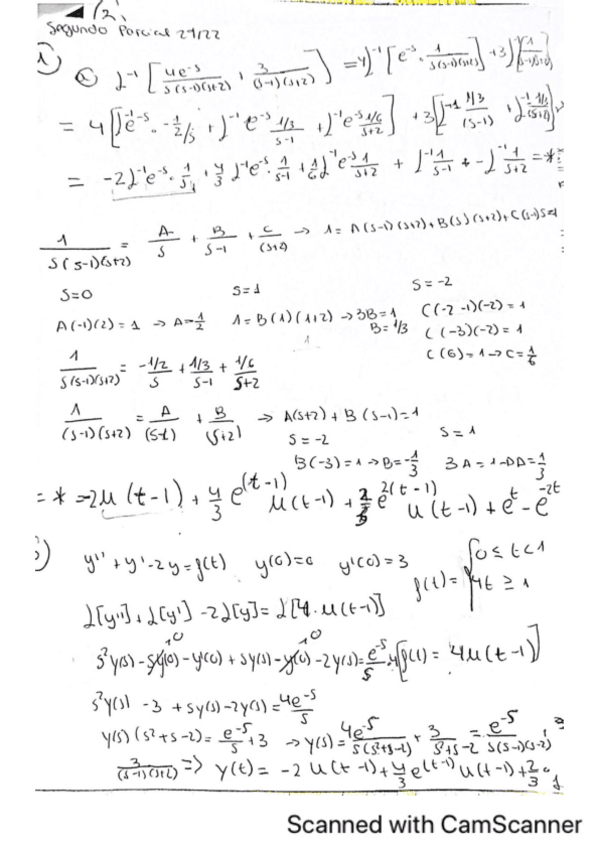 12.
Segundo Parcial 21/22
1)
a) L⁻¹ [ 4e^-s / s(s-1)(s+2) + 3 / (s-1)(s+2) ] = 4L⁻¹ [ e^-s · 1 / s(s-1)(s+2) ] + 3L⁻¹ [ 1 / (s-1)(s+2) ]
= 4 [ L⁻¹ e^-s · -1/2 / s + L⁻¹ e^-s 1/3 / s-1 + L⁻¹ e^-s 1/6 / s+2 ] + 3 [ L⁻¹ 1/3 / (s-1) + L⁻¹ -1/3 / (s+2) ]
= -2L⁻¹ e^-s · 1/s + 4/3 L⁻¹ e^-s · 1/s-1 + 4/6 L⁻¹ e^-s 1/s+2 + L⁻¹ 1/s-1 + -L⁻¹ 1/s+2 = *
1 / s(s-1)(s+2) = A/s + B/s-1 + C/(s+2) → 1 = A(s-1)(s+2) + B(s)(s+2) + C(s-1)s
s=0 s=1 s=-2
A(-1)(2) = 1 → A=-1/2 1 = B(1)(1+2) → 3B=1 C(-2-1)(-2) = 1
B = 1/3 C(-3)(-2) = 1
C(6) = 1 → C = 1/6
1 / s(s-1)(s+2) = -1/2 / s + 1/3 / s-1 + 1/6 / s+2
1 / (s-1)(s+2) = A/(s-1) + B/(s+2) → A(s+2) + B(s-1) = 1
s = -2 s = 1
B(-3) = 1 → B = -1/3 3A = 1 → A = 1/3
= * = -2u(t-1) + 4/3 e^(t-1) u(t-1) + 2/3 e^2(t-1) u(t-1) + e^t - e^-2t
b) y'' + y' - 2y = f(t) y(0)=0 y'(0) = 3 f(t) = { 0 ≤ t<1
4 t ≥ 1
L[y''] + L[y'] - 2L[y] = L[4·u(t-1)]
s²y(s) - sy(0) - y'(0) + sy(s) - y(0) - 2y(s) = e^-s / s · 4 [f(t) = 4u(t-1)]
s²y(s) - 3 + sy(s) - 2y(s) = 4e^-s / s
y(s) (s²+s-2) = e^-s / s + 3 → y(s) = 4e^-s / s(s²+s-2) + 3 / s²+s-2 = e^-s / s(s-1)(s-2) +
3 / (s-1)(s+2) => y(t) = -2 u(t-1) + 4/3 e^(t-1) u(t-1) + 2/3
Scanned with CamScanner